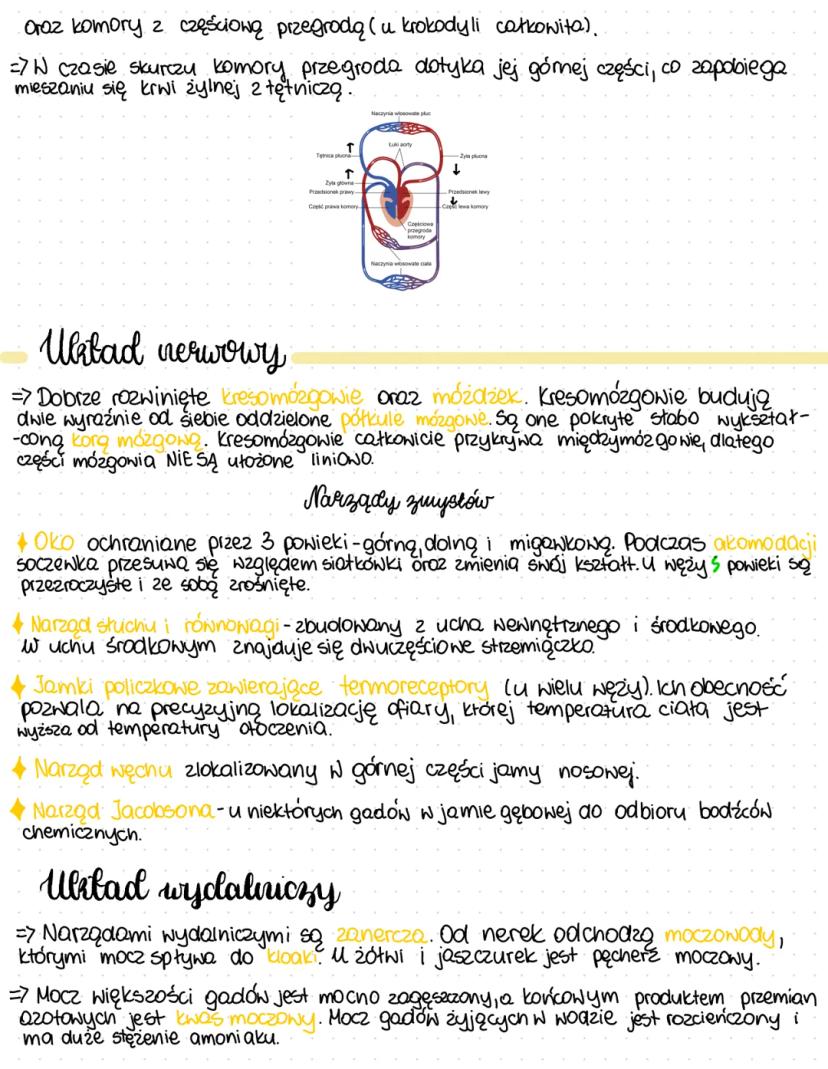 oraz komory z częściową przegrodą (u krokodyli całkowita).
=> W czasie skurczu komory przegroda dotyka jej górnej części, co zapobiega
mieszaniu się krwi żylnej z tętniczą.
Naczynia włosowate płuc
Łuki aorty
Tętnica płucna
Żyła płucna
Żyła główna
Przedsionek prawy
Przedsionek lewy
Część prawa komory
Część lewa komory
Częściowa
przegroda
komory
Naczynia włosowate ciała
Układ nerwowy
=> Dobrze rozwinięte kresomózgowie oraz móżdżek. Kresomózgowie budują
dwie wyraźnie od siebie oddzielone półkule mózgowe. Są one pokryte słabo wykształ-
-coną korą mózgową. Kresomózgowie całkowicie przykrywa międzymózgowie, dlatego
części mózgowia NIE SĄ ułożone liniowo.
Narządy zmysłów
Oko ochraniane przez 3 powieki - górną, dolną i migawkową. Podczas akomodacji
soczewka przesuwa się względem siatkówki oraz zmienia swój kształt. U węży S powieki są
przezroczyste i ze sobą zrośnięte.
Narząd słuchu i równowagi - zbudowany z ucha wewnętrznego i środkowego.
W uchu środkowym znajduje się dwuczęściowe strzemiączko.
Jamki policzkowe zawierające termoreceptory (u wielu węży). Ich obecność
pozwala na precyzyjną lokalizację ofiary, której temperatura ciała jest
wyższa od temperatury otoczenia.
Narząd węchu zlokalizowany w górnej części jamy nosowej.
Narząd Jacobsona - u niektórych gadów w jamie gębowej do odbioru bodźców
chemicznych.
Układ wydalniczy
=> Narządami wydalniczymi są zanercza. Od nerek odchodzą moczowody,
którymi mocz spływa do kloaki. U żółwi i jaszczurek jest pęcherz moczowy.
=> Mocz większości gadów jest mocno zagęszczony, a końcowym produktem przemian
azotowych jest kwas moczowy. Mocz gadów żyjących w wodzie jest rozcieńczony i
ma duże stężenie amoniaku.